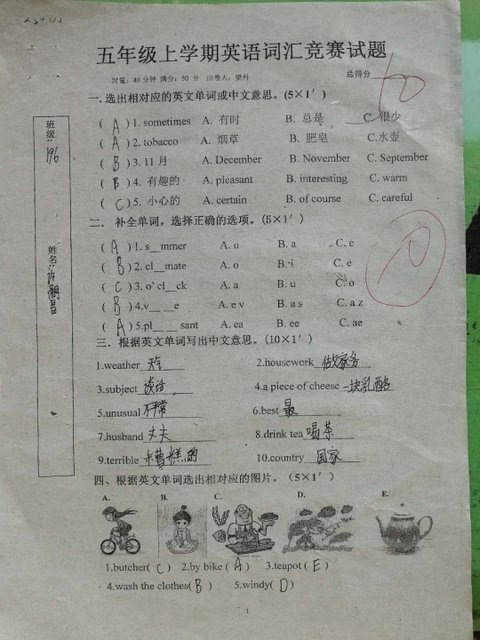 五年级上学期英语词汇竞赛试题
时量：40分钟 满分：50 分 出卷人：
总得分
一.选出相对应的英文单词或中文意思。(5×1′)
( A ) 1. sometimes A. 有时 B. 总是 C. 很少
( A ) 2. tobacco A. 烟草 B. 肥皂 C.水壶
( B ) 3. 11 月 A. December B. November C. September
( B ) 4. 有趣的 A. pleasant B. interesting C. warm
( C ) 5. 小心的 A. certain B. of course C. careful
二. 补全单词，选择正确的选项。(5×1′)
( A ) 1. s__mmer A. u B. a C. e
( B ) 2. cl__mate A. o B. i C. e
( C ) 3. o' cl__ck A. a B. u C. o
( B ) 4.v__ __e A. e v B. a s C. a z
( A ) 5.pl__ __ sant A. ea B. ee C. ae
三. 根据英文单词写出中文意思。(10×1′)
1.weather 天气 2.housework 做家务
3.subject 谈话 4.a piece of cheese 一块乳酪
5.unusual 不平常 6.best 最
7.husband 丈夫 8.drink tea 喝茶
9.terrible 糟糕的 10.country 国家
四、根据英文单词选出相对应的图片。(5×1′)
A. B. C. D. E.
1.butcher( C ) 2.by bike ( A ) 3.teapot ( E )
4.wash the clothes( B ) 5.windy( D )
1
班级:196
姓名: